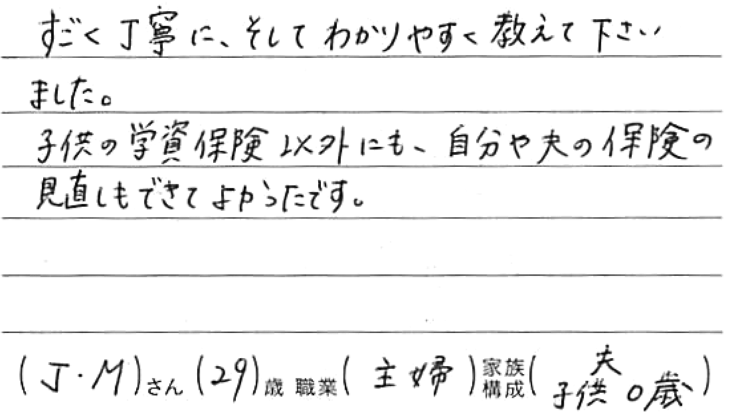 すごく丁寧に、そしてわかりやすく教えて下さい
ました。
子供の学資保険以外にも、自分や夫の保険の
見直しもできてよかったです。
(J・M)さん(29)歳 職業(主婦)家族構成(夫 子供0歳)